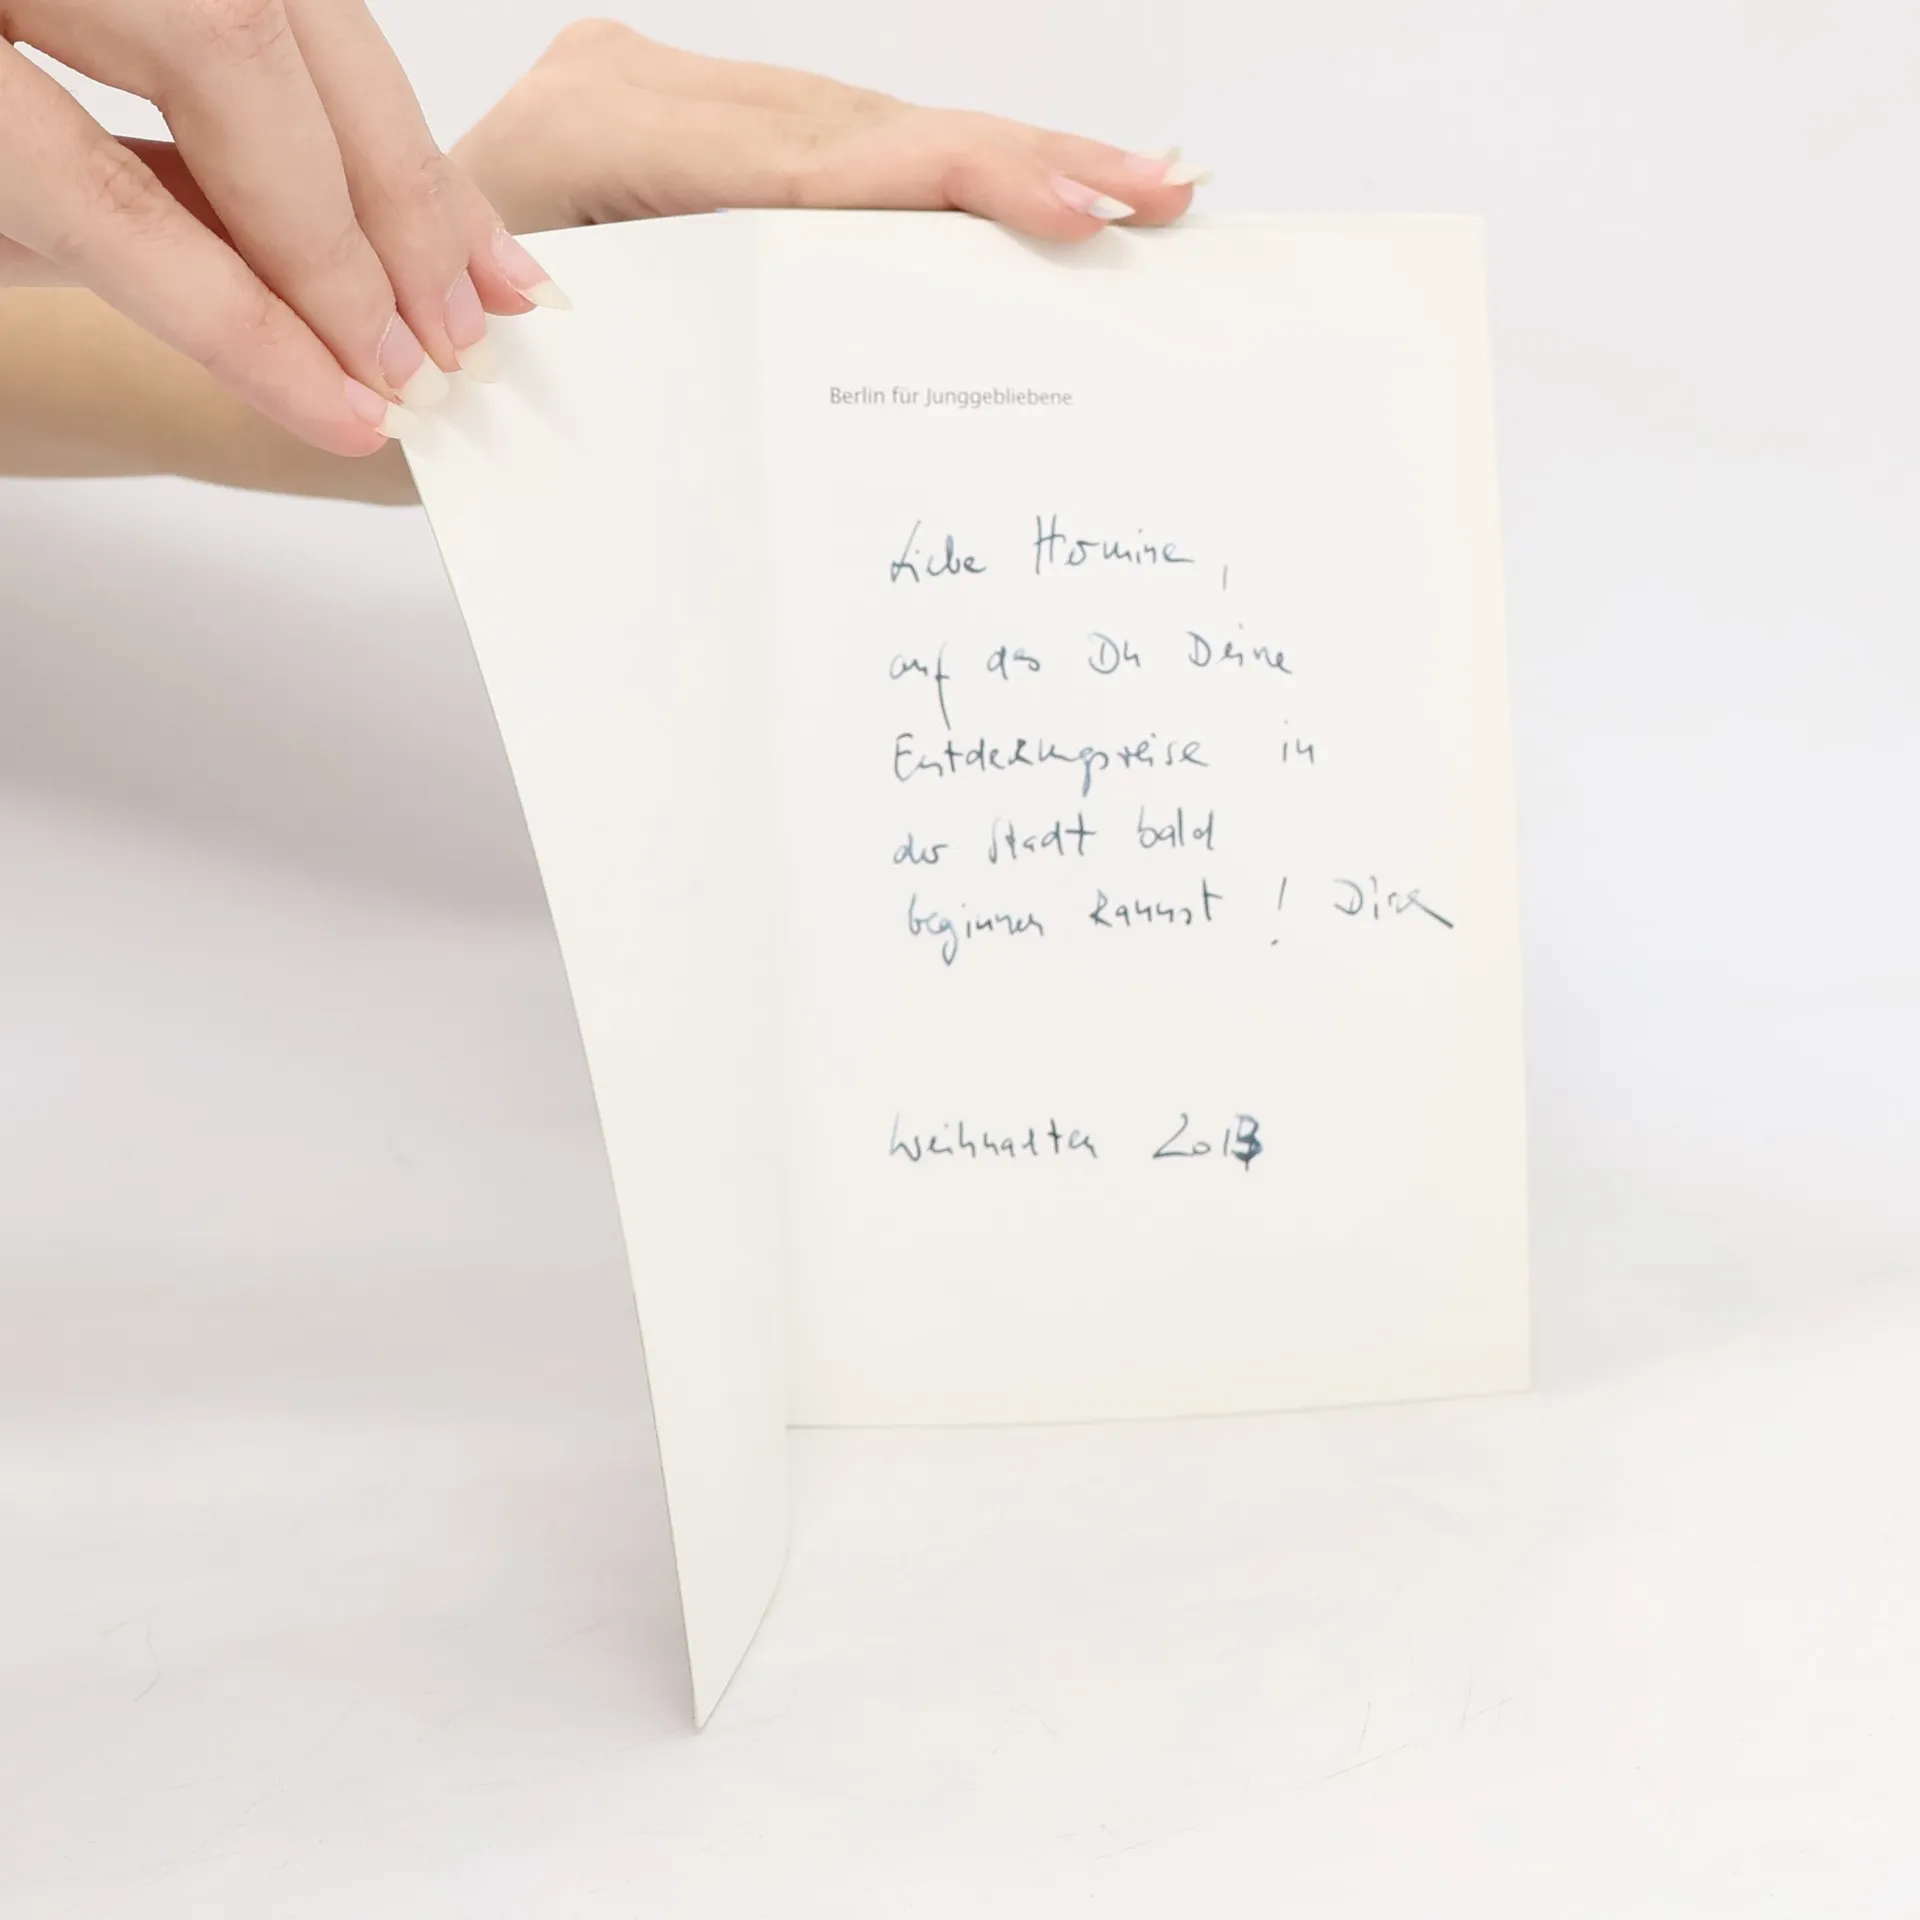 Berlin für Junggebliebene
Liebe Hermine,
auf das Du Deine
Entdeckungsreise in
der Stadt bald
beginnen kannst! Dirk
Weihnachten